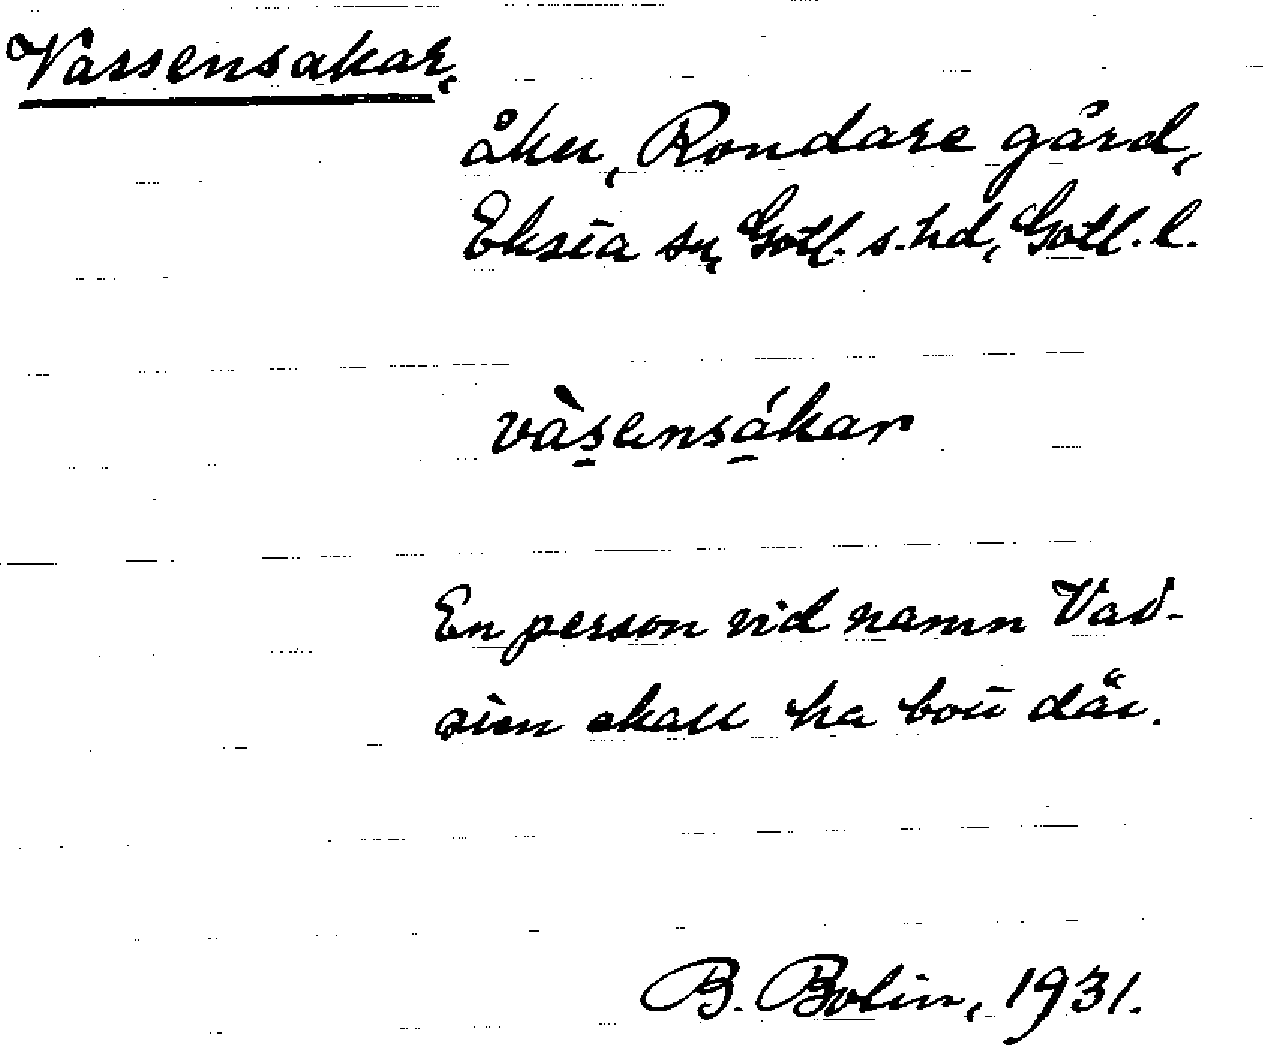 Vassensakar,
åker, Rondare gård,
Eksta sn, Gotl. s. hd, Gotl. l.
vàsensákar
En person vid namn Vas-
sien skall ha bott där.
B. Bolin, 1931.